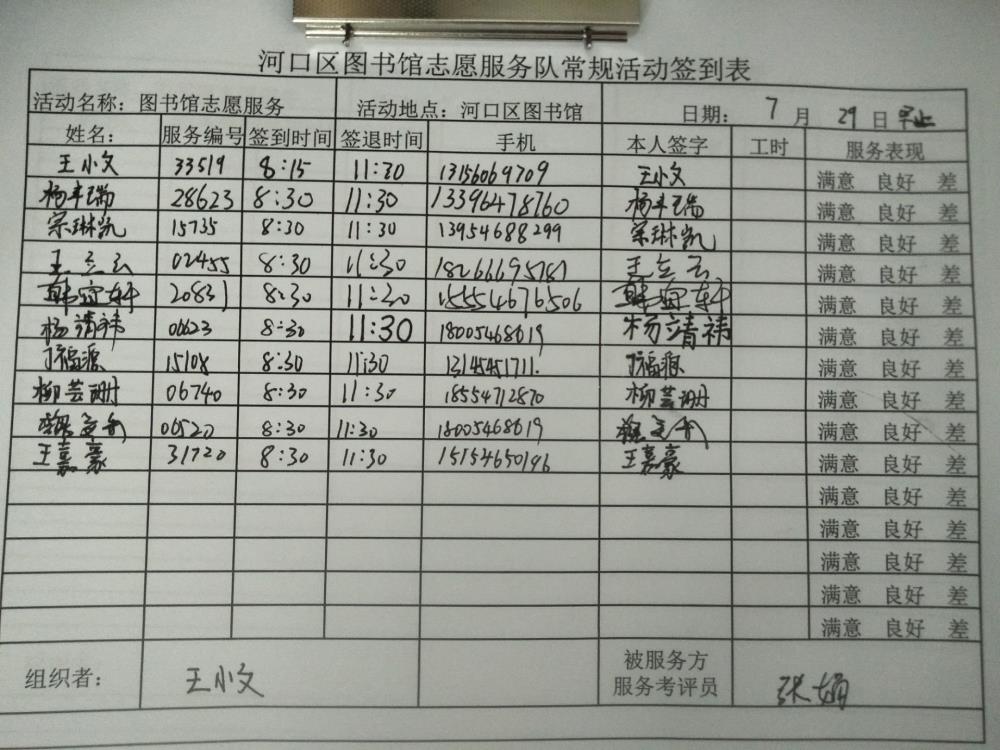 河口区图书馆志愿服务队常规活动签到表
活动名称：图书馆志愿服务 活动地点：河口区图书馆 日期： 7 月 29 日
姓名： 服务编号 签到时间 签退时间 手机 本人签字 工时 服务表现
王小文 33519 8:15 11:30 13156069709 王小文 满意 良好 差
杨丰瑞 28623 8:30 11:30 13396478760 杨丰瑞 满意 良好 差
宗琳凯 15735 8:30 11:30 13954688299 宗琳凯 满意 良好 差
王立云 02455 8:30 11:30 18266695781 王立云 满意 良好 差
韩宜轩 20831 8:30 11:30 15554676506 韩宜轩 满意 良好 差
杨靖祎 06623 8:30 11:30 18005468619 杨靖祎 满意 良好 差
15108 8:30 11:30 13145451711. 满意 良好 差
柳芸珊 06740 8:30 11:30 18554712870 柳芸珊 满意 良好 差
06520 8:30 11:30 18005468619 满意 良好 差
王嘉豪 31720 8:30 11:30 15154650196 王嘉豪 满意 良好 差
满意 良好 差
满意 良好 差
满意 良好 差
满意 良好 差
满意 良好 差
组织者： 王小文 被服务方
服务考评员 张娟